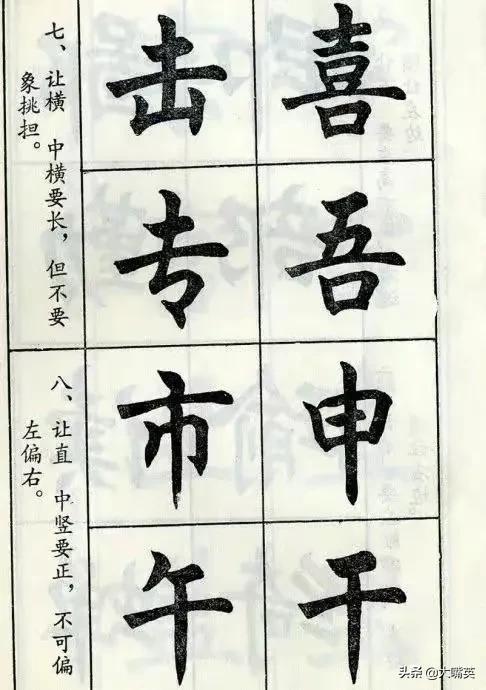 七、让横 中横要长，但不要
象挑担。
喜
击
吾
专
八、让直 中竖要正，不可偏
左偏右。
申
市
干
午
头条 @大嘴英